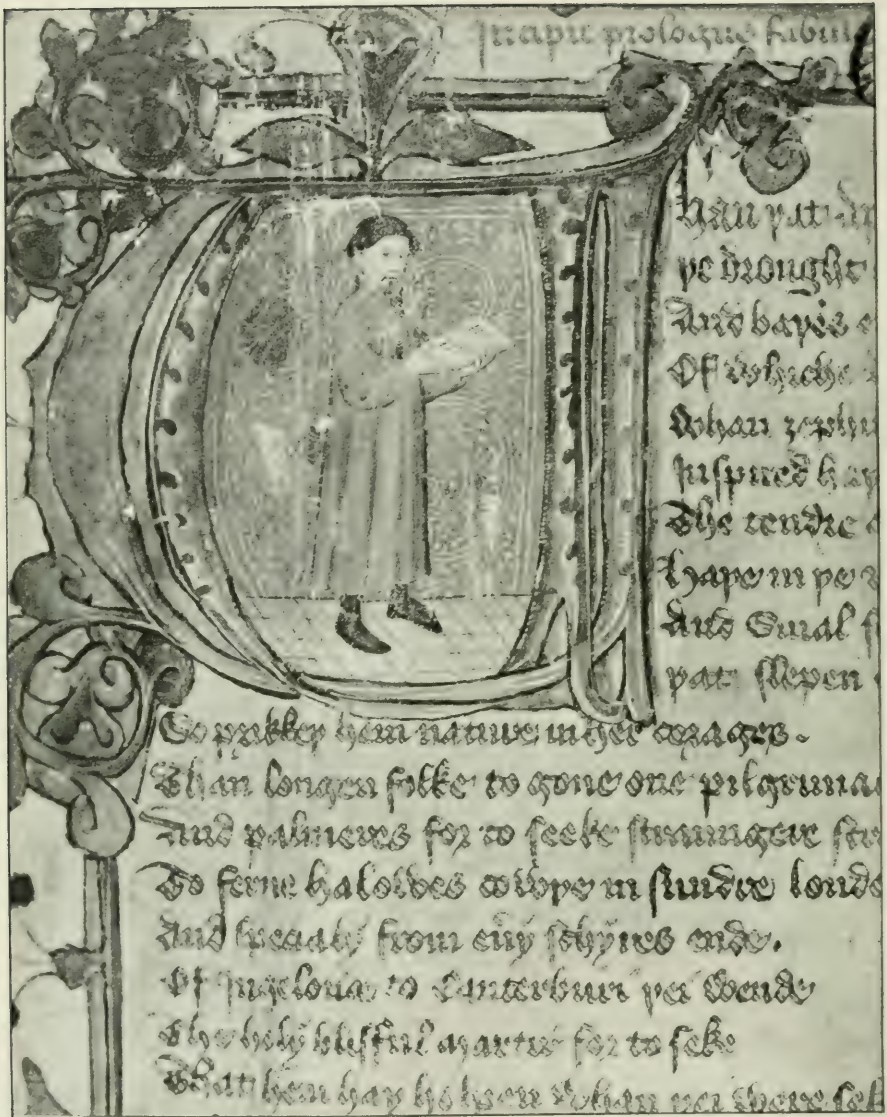 Incipit prologus fabul
Whan þat
þe drought
And baþis
Of whiche
Whan zephi
Inspired haþ
The tendre
haþe in þe
And Smal
þat slepen
So prikkeþ hem nature in her corages.
Than longen folke to gone one pilgrima
And palmeres for to seeke straungere str
To ferne halowes cowþe in sundre londe
And speciali from eny schyres ende.
Of Ingelond to Canterburi þei Wende
The holy blisful martir for to seke
That hem haþ holpen Whan þei Were sek